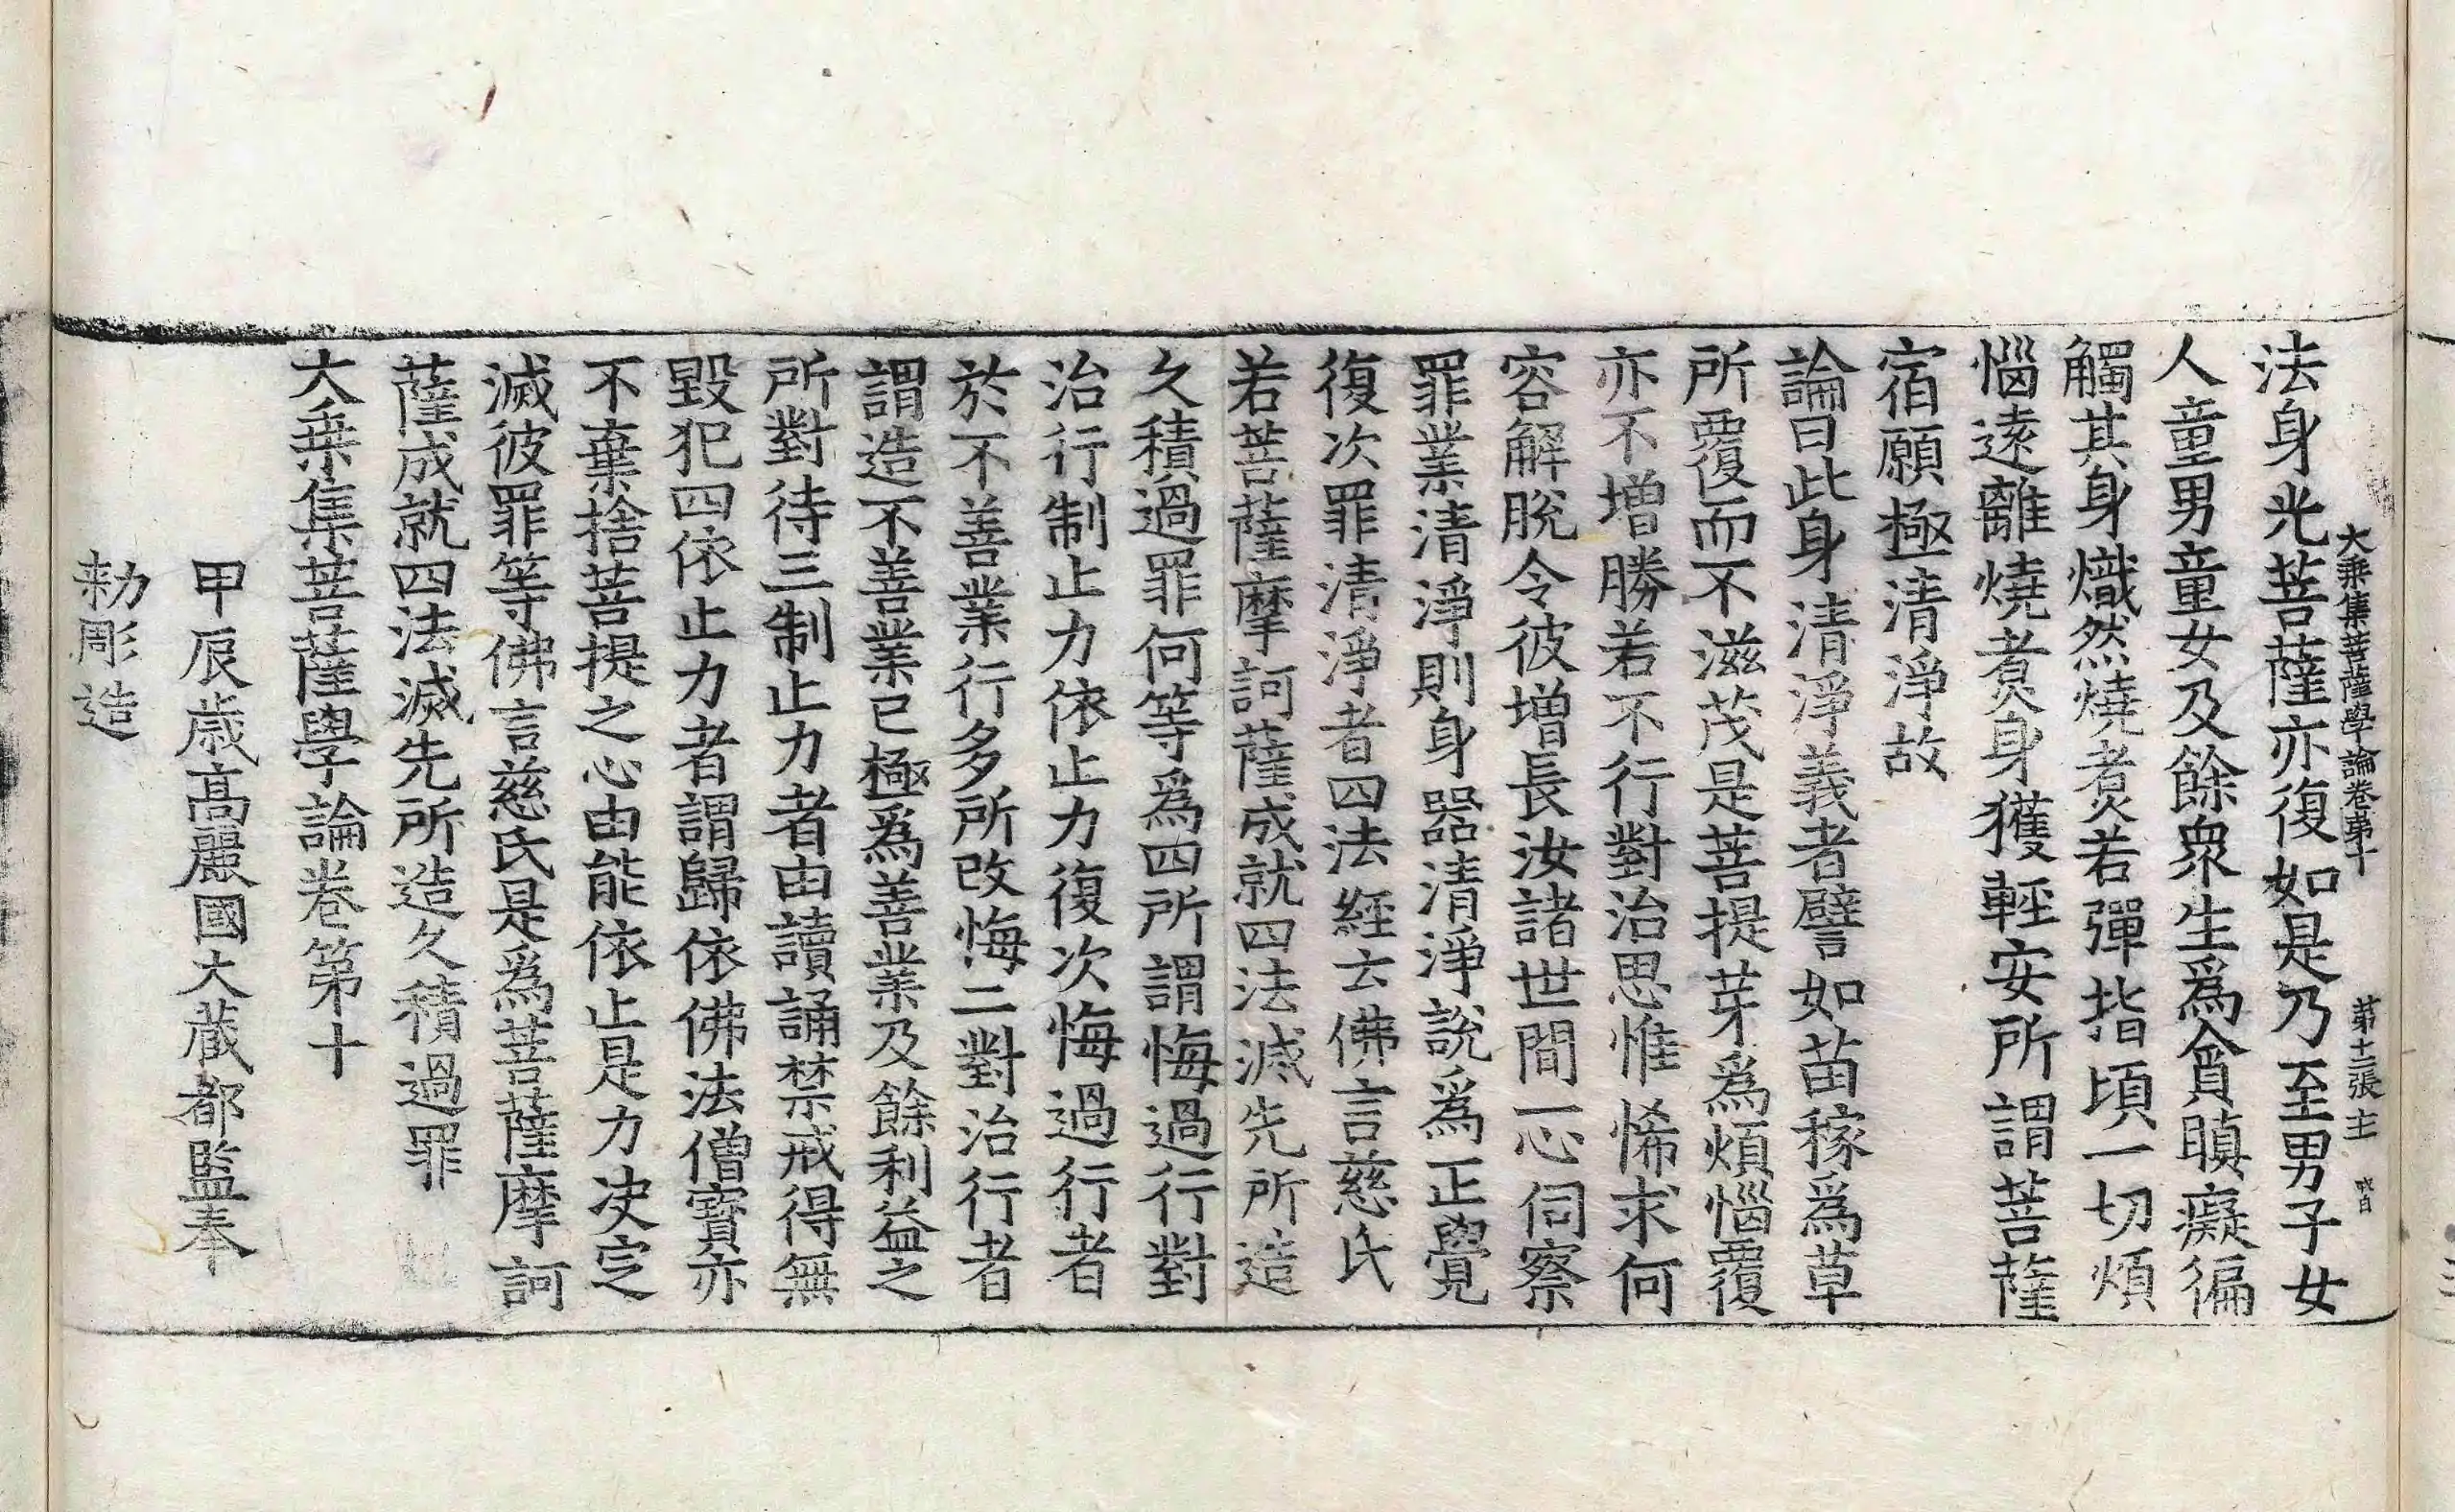 大乗集菩薩學論卷第十 第十二張 主
法身光菩薩亦復如是乃至男子女
人童男童女及餘衆生爲貪瞋癡徧
觸其身熾然燒煮若彈指頃一切煩
惱遠離燒煮身獲輕安所謂菩薩
宿願極清淨故
論曰此身清淨義者譬如苗稼爲草
所覆而不滋茂是菩提芽爲煩惱覆
亦不增勝若不行對治思惟悕求何
容解脫令彼增長汝諸世間一心伺察
罪業清淨則身器清淨說爲正覺
復次罪清淨者四法經云佛言慈氏
若菩薩摩訶薩成就四法滅先所造
久積過罪何等爲四所謂悔過行對
治行制止力依止力復次悔過行者
於不善業行多所改悔二對治行者
謂造不善業已極爲善業及餘利益之
所對待三制止力者由讀誦禁戒得無
毀犯四依止力者謂歸依佛法僧寶亦
不棄捨菩提之心由能依止是力决定
滅彼罪等佛言慈氏是爲菩薩摩訶
薩成就四法滅先所造久積過罪
大乗集菩薩學論卷第十
甲辰歳高麗國大藏都監奉
勅彫造